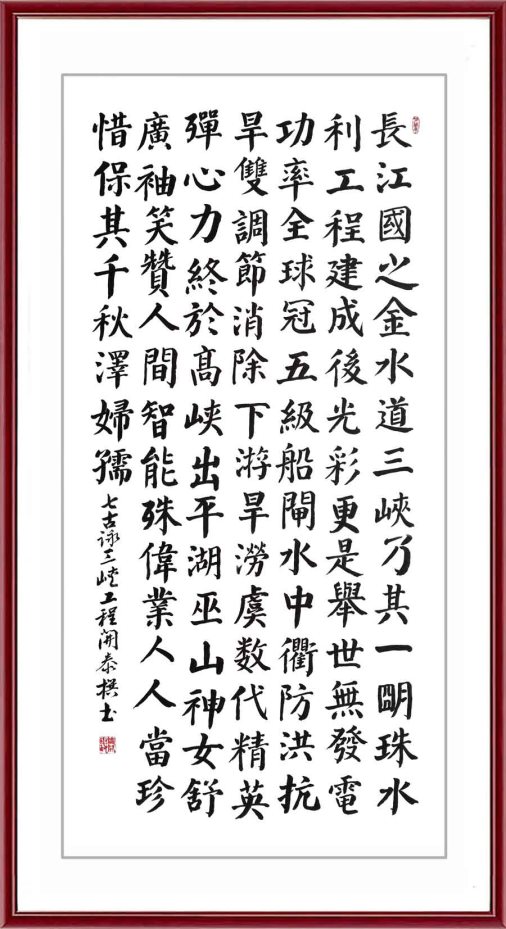 長江國之金水道三峽乃其一明珠水
利工程建成後光彩更是舉世無發電
功率全球冠五級船閘水中衢防洪抗
旱雙調節消除下游旱澇虞数代精英
彈心力終於髙峡出平湖巫山神女舒
廣袖笑贊人間智能殊偉業人人當珍
惜保其千秋澤婦孺
七古詠三峡工程開泰撰书